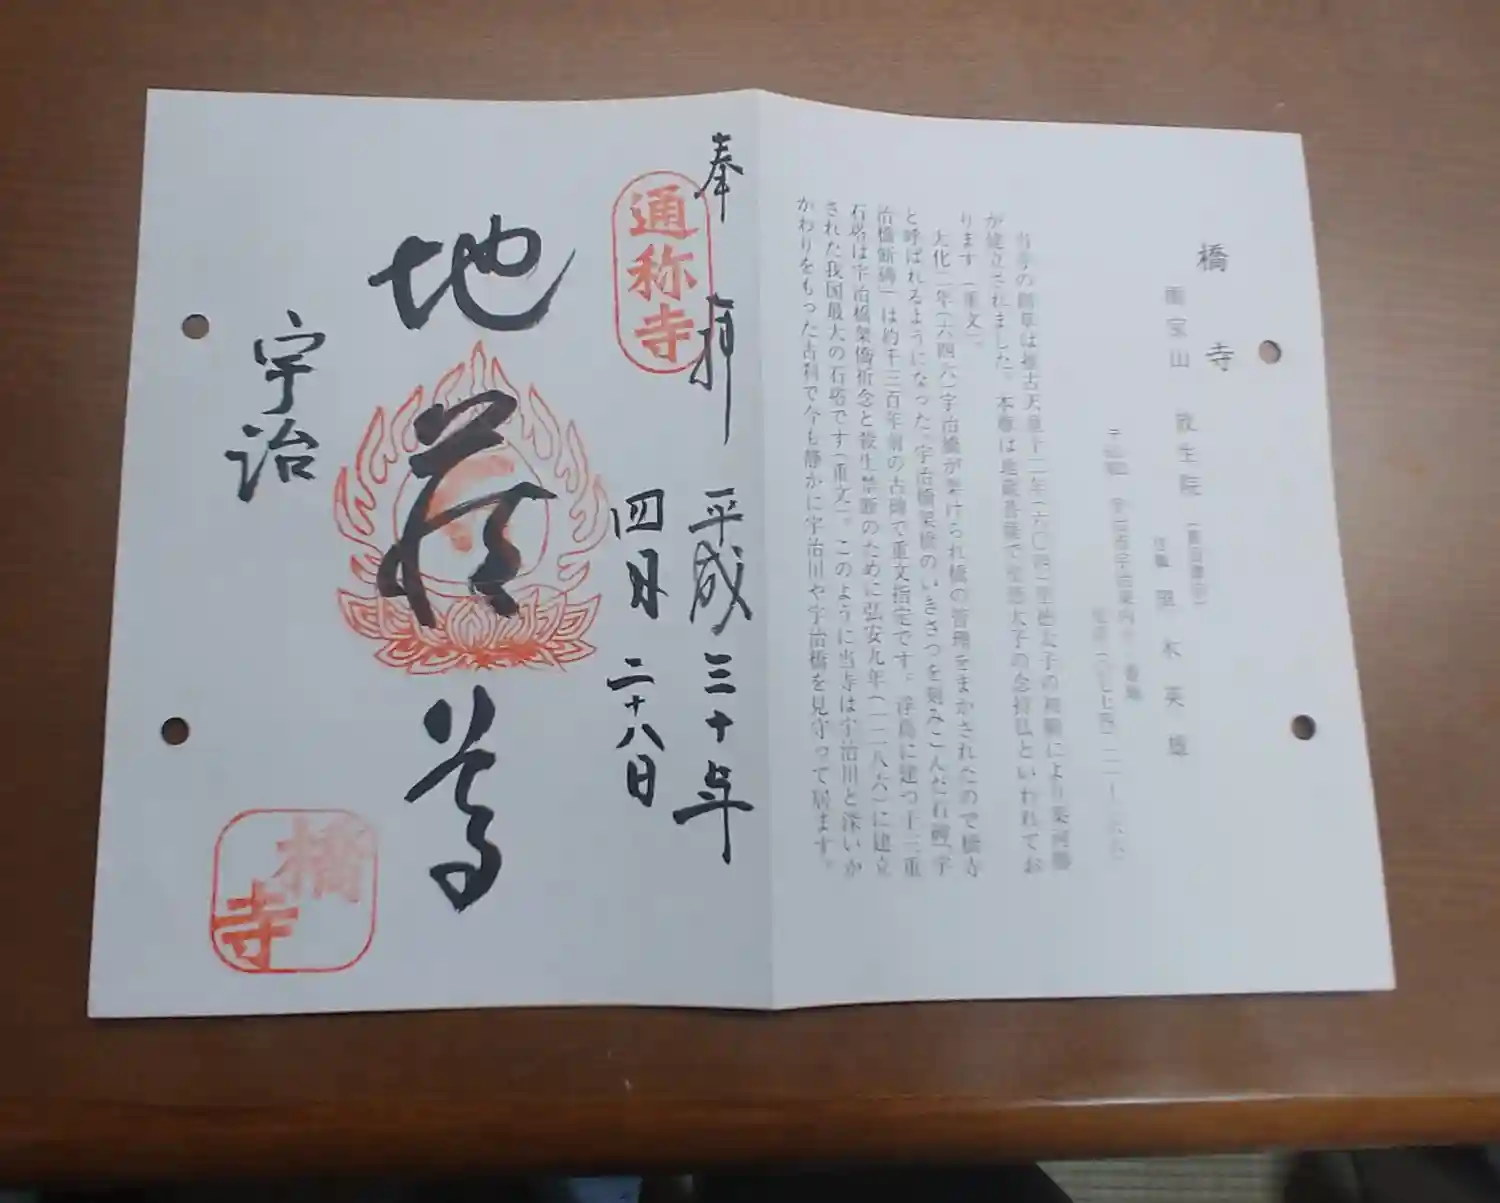 橋寺
雨宝山 放生院
住職
当寺の創草は推古天皇十二年(六〇四)聖徳太子の初願により秦河勝
が建立されました。本尊は地蔵菩薩で聖徳太子の念持仏といわれてお
ります(重文)。
大化二年(六四六)宇治橋が架けられ橋の管理をまかされたので橋寺
と呼ばれるようになった。宇治橋架橋のいきさつを刻みこんだ石碑「宇
治橋断碑」は約千三百年前の古碑で重文指定です。浮島に建つ十三重
石塔は宇治橋架僑祈念と殺生禁断のために弘安九年(一二八六)に建立
された我国最大の石塔です(重文)。このように当寺は宇治川と深いか
かわりをもった古刹で今も静かに宇治川や宇治橋を見守って居ます。
奉拝 平成三十年
四月二十八日
通称寺
地蔵尊
宇治
橋寺